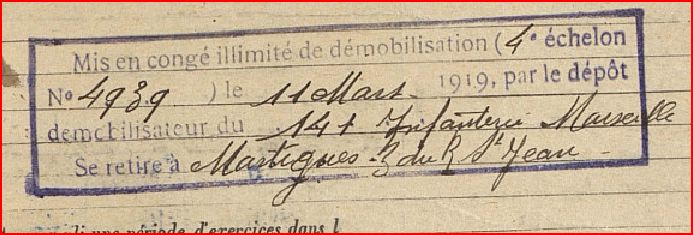 Mis en congé illimité de démobilisation (4e échelon
No 4939 ) le 11 Mars 1919, par le dépôt
démobilisateur du 141 Infanterie Marseille
Se retire à Martigues 3 du R St Jean
une période d'exercices dans l